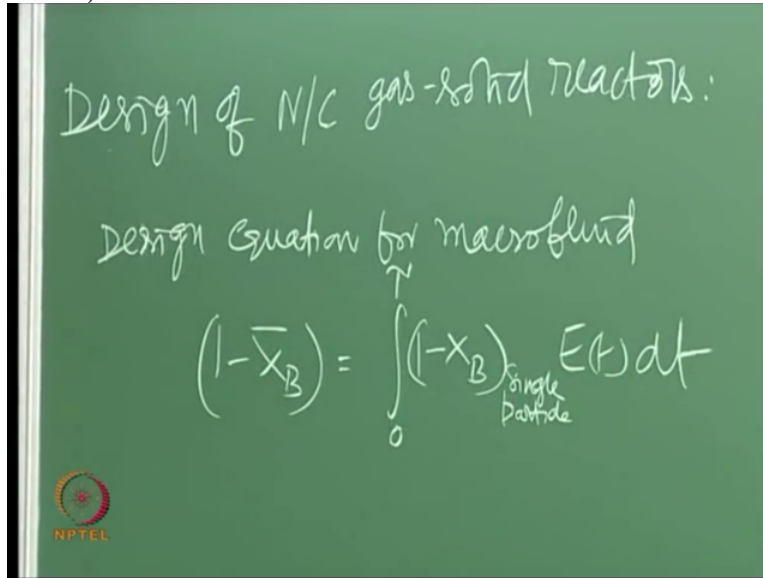 Design of N/C gas-solid reactors:
Design equation for macrofluid
(1-X̄_B) = ∫_0^τ (1-X_B)_single particle E(t) dt
NPTEL